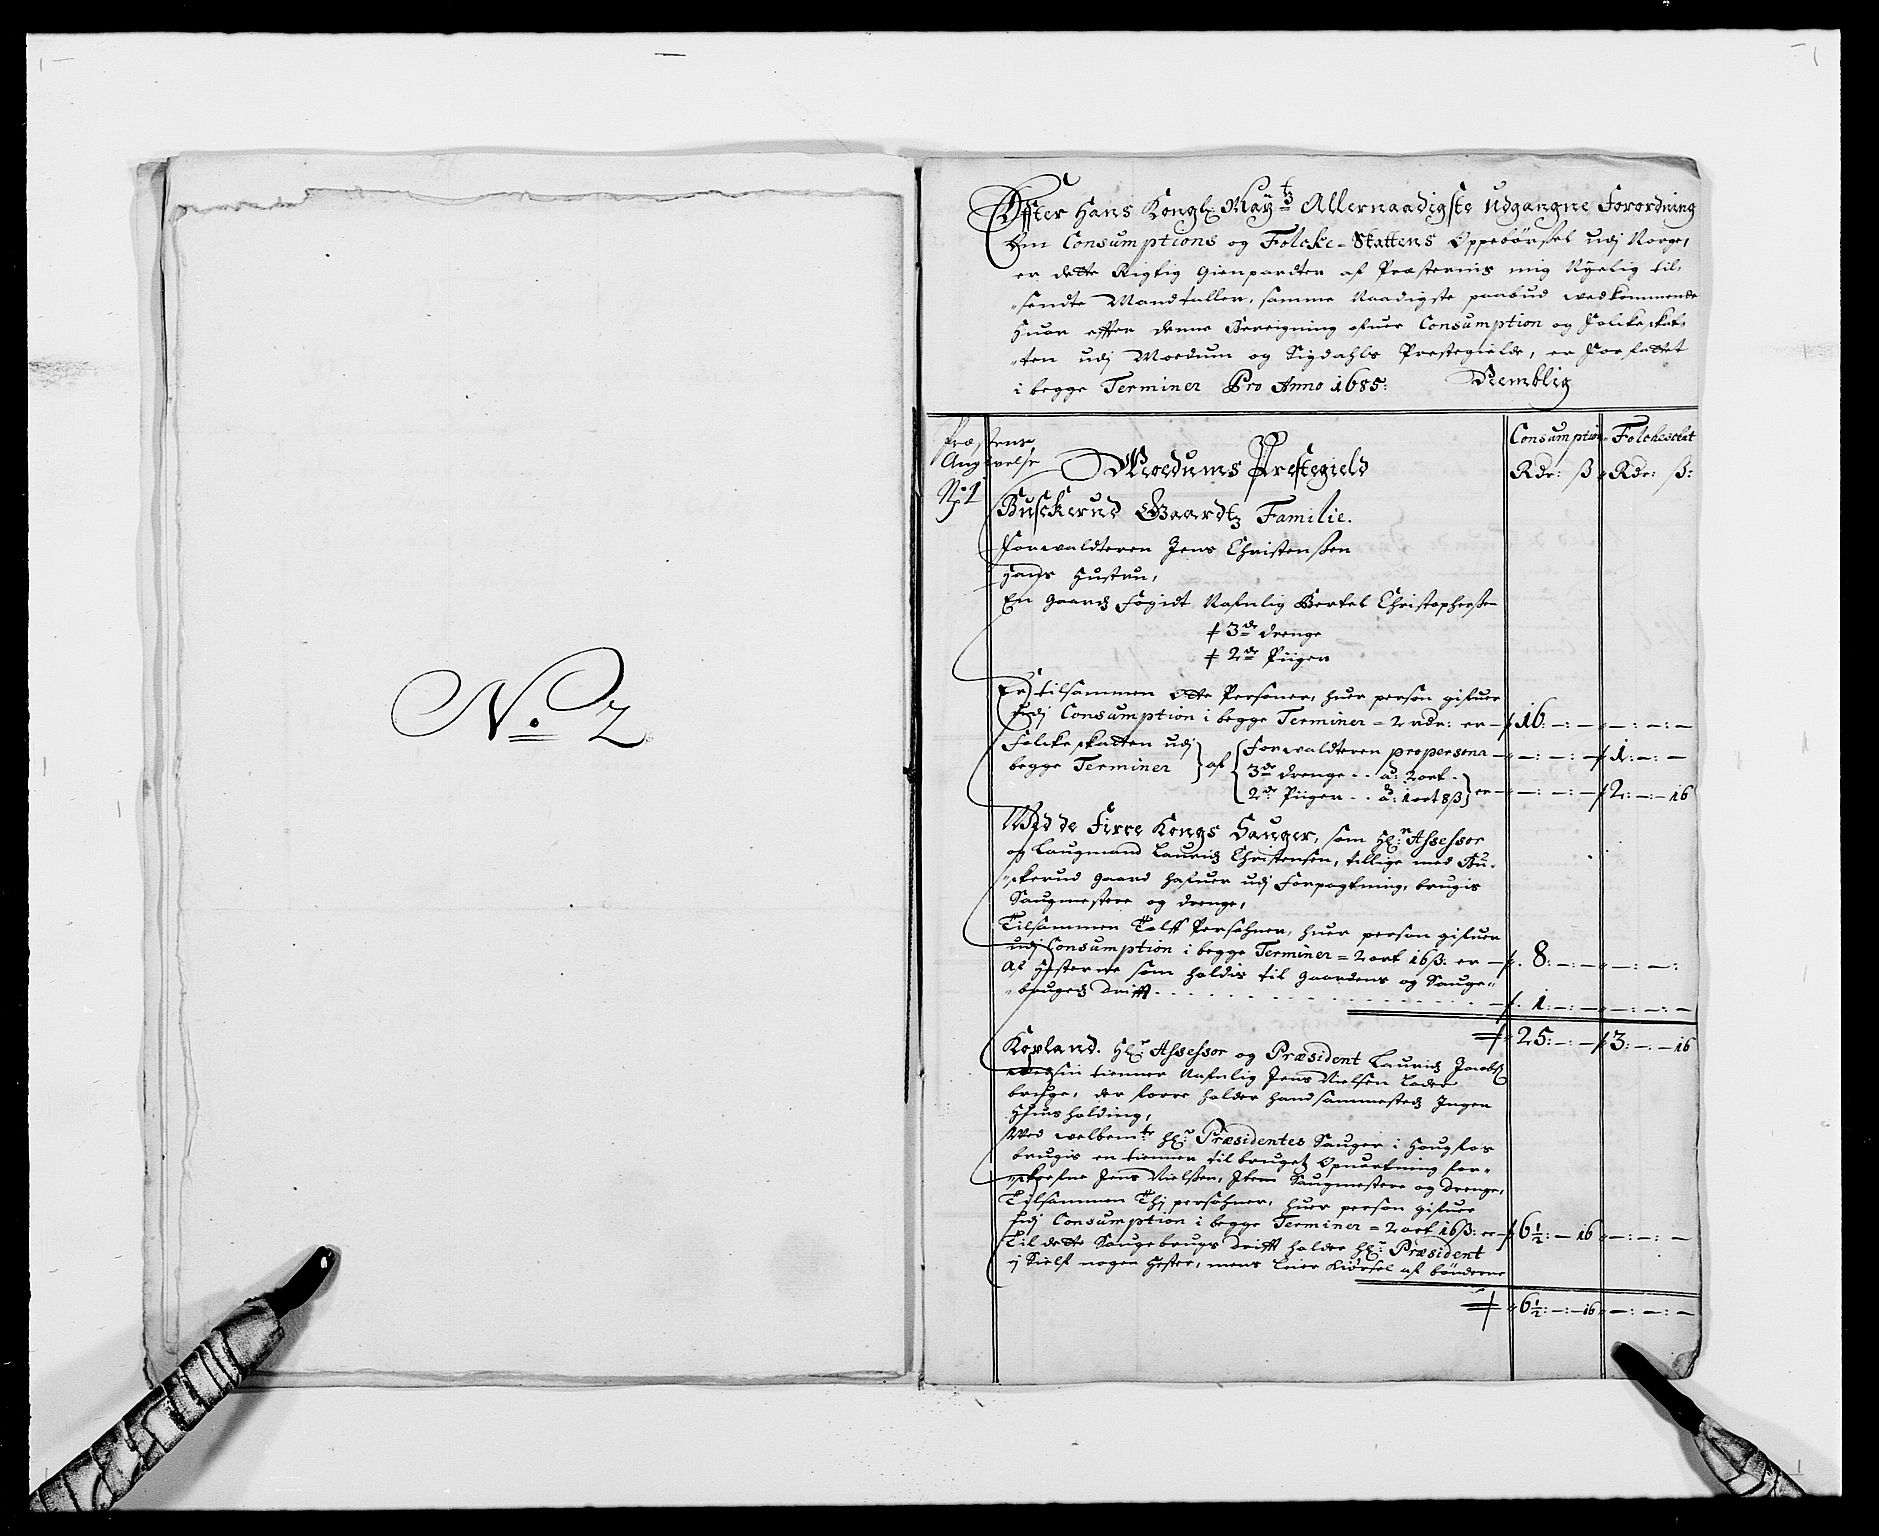 No 2
Effter Hans Kongl: May:tz Allernaadigste Udgangne Forordning
Om Consumptions og Folcke-Skattens Oppebørsel udj Norge,
er dette Rigtig Gienpardter af Præsternis mig Nyelig til,
sendte Mandtaller, samme Naadigste paabud vedkommende
Huor effter denne Bereigning ofuer Consumption og Folckeskat-
ten udj Moedum og Sigdahls Prestegielde, er Forfattet
i begge Terminer Pro Anno 1685: Nemblig
Præstens
Angivelse
No: 1
Consumption Folckeschat
Rdr: ß Rdr: ß:
Moedums Prestegield
Buskerud Gaardtz Familie.
Forwaldteren Jens Christenßen
Hans Hustru,
En Gaardz Fogidt Nafnlig Bertel Christopherßen
+ 3de drenge
+ 2de Piiger
Er tilsammen Otte Personer, huer person gifuer
udj Consumption i begge Terminer = 2 rdr: er – 16: –: – – –: –: –
Folckeskatten udj
begge Terminer } af { Forwaldteren pro persona – –: –: – 1: –: –
3de drenge . . à: 2 ort .
2de Piiger . . à: 1 ort 8 ß } er – –: –: – 2: –: – 16
Wed de Firre Kongs Sauger, som Hr: Assessor
og Laugmand Lauridz Christensen, tillige med Bu-
skerud Gaard hafuer udj Forpagtning, brugis
Saugmestere og drenge,
Tilsammen Tolff Persohner, huer person gifuer
udj Consumption i begge Terminer = 2 ort 16 ß: er – 8: –: – – –: –:
Af Hesterne som holdis til Gaardens og Sauge-
brugetz Drifft . . . . . – 1: –: – – –: –: –
25: –: – 3: –: – 16
Kopland. Hr: Assessor og Præsident Lauridz Jacobs:
ved sin tienner Nafnlig Jens Nielsen Lader
bruge, der forre holder hand sammestedz Ingen
Huusholding,
Wed velbem:te Hr: Præsidentes Sauger i Hougfos
brugis en tienner til brugetz Opuartning for-
skrefne Jens Nielßen, Item Saugmestere og drenge,
Tilsammen Thj persohner, huer person gifuer
udj Consumption i begge Terminer = 2 ort 16 ß: er – 6½: – 16 – –: –: –
Til dette Saugebrugs Drifft holder Hr: Præsident
ej Sielf nogen Hester, mens Leier Kiørsel af bønderne
6½: –: – 16 – –: –: –